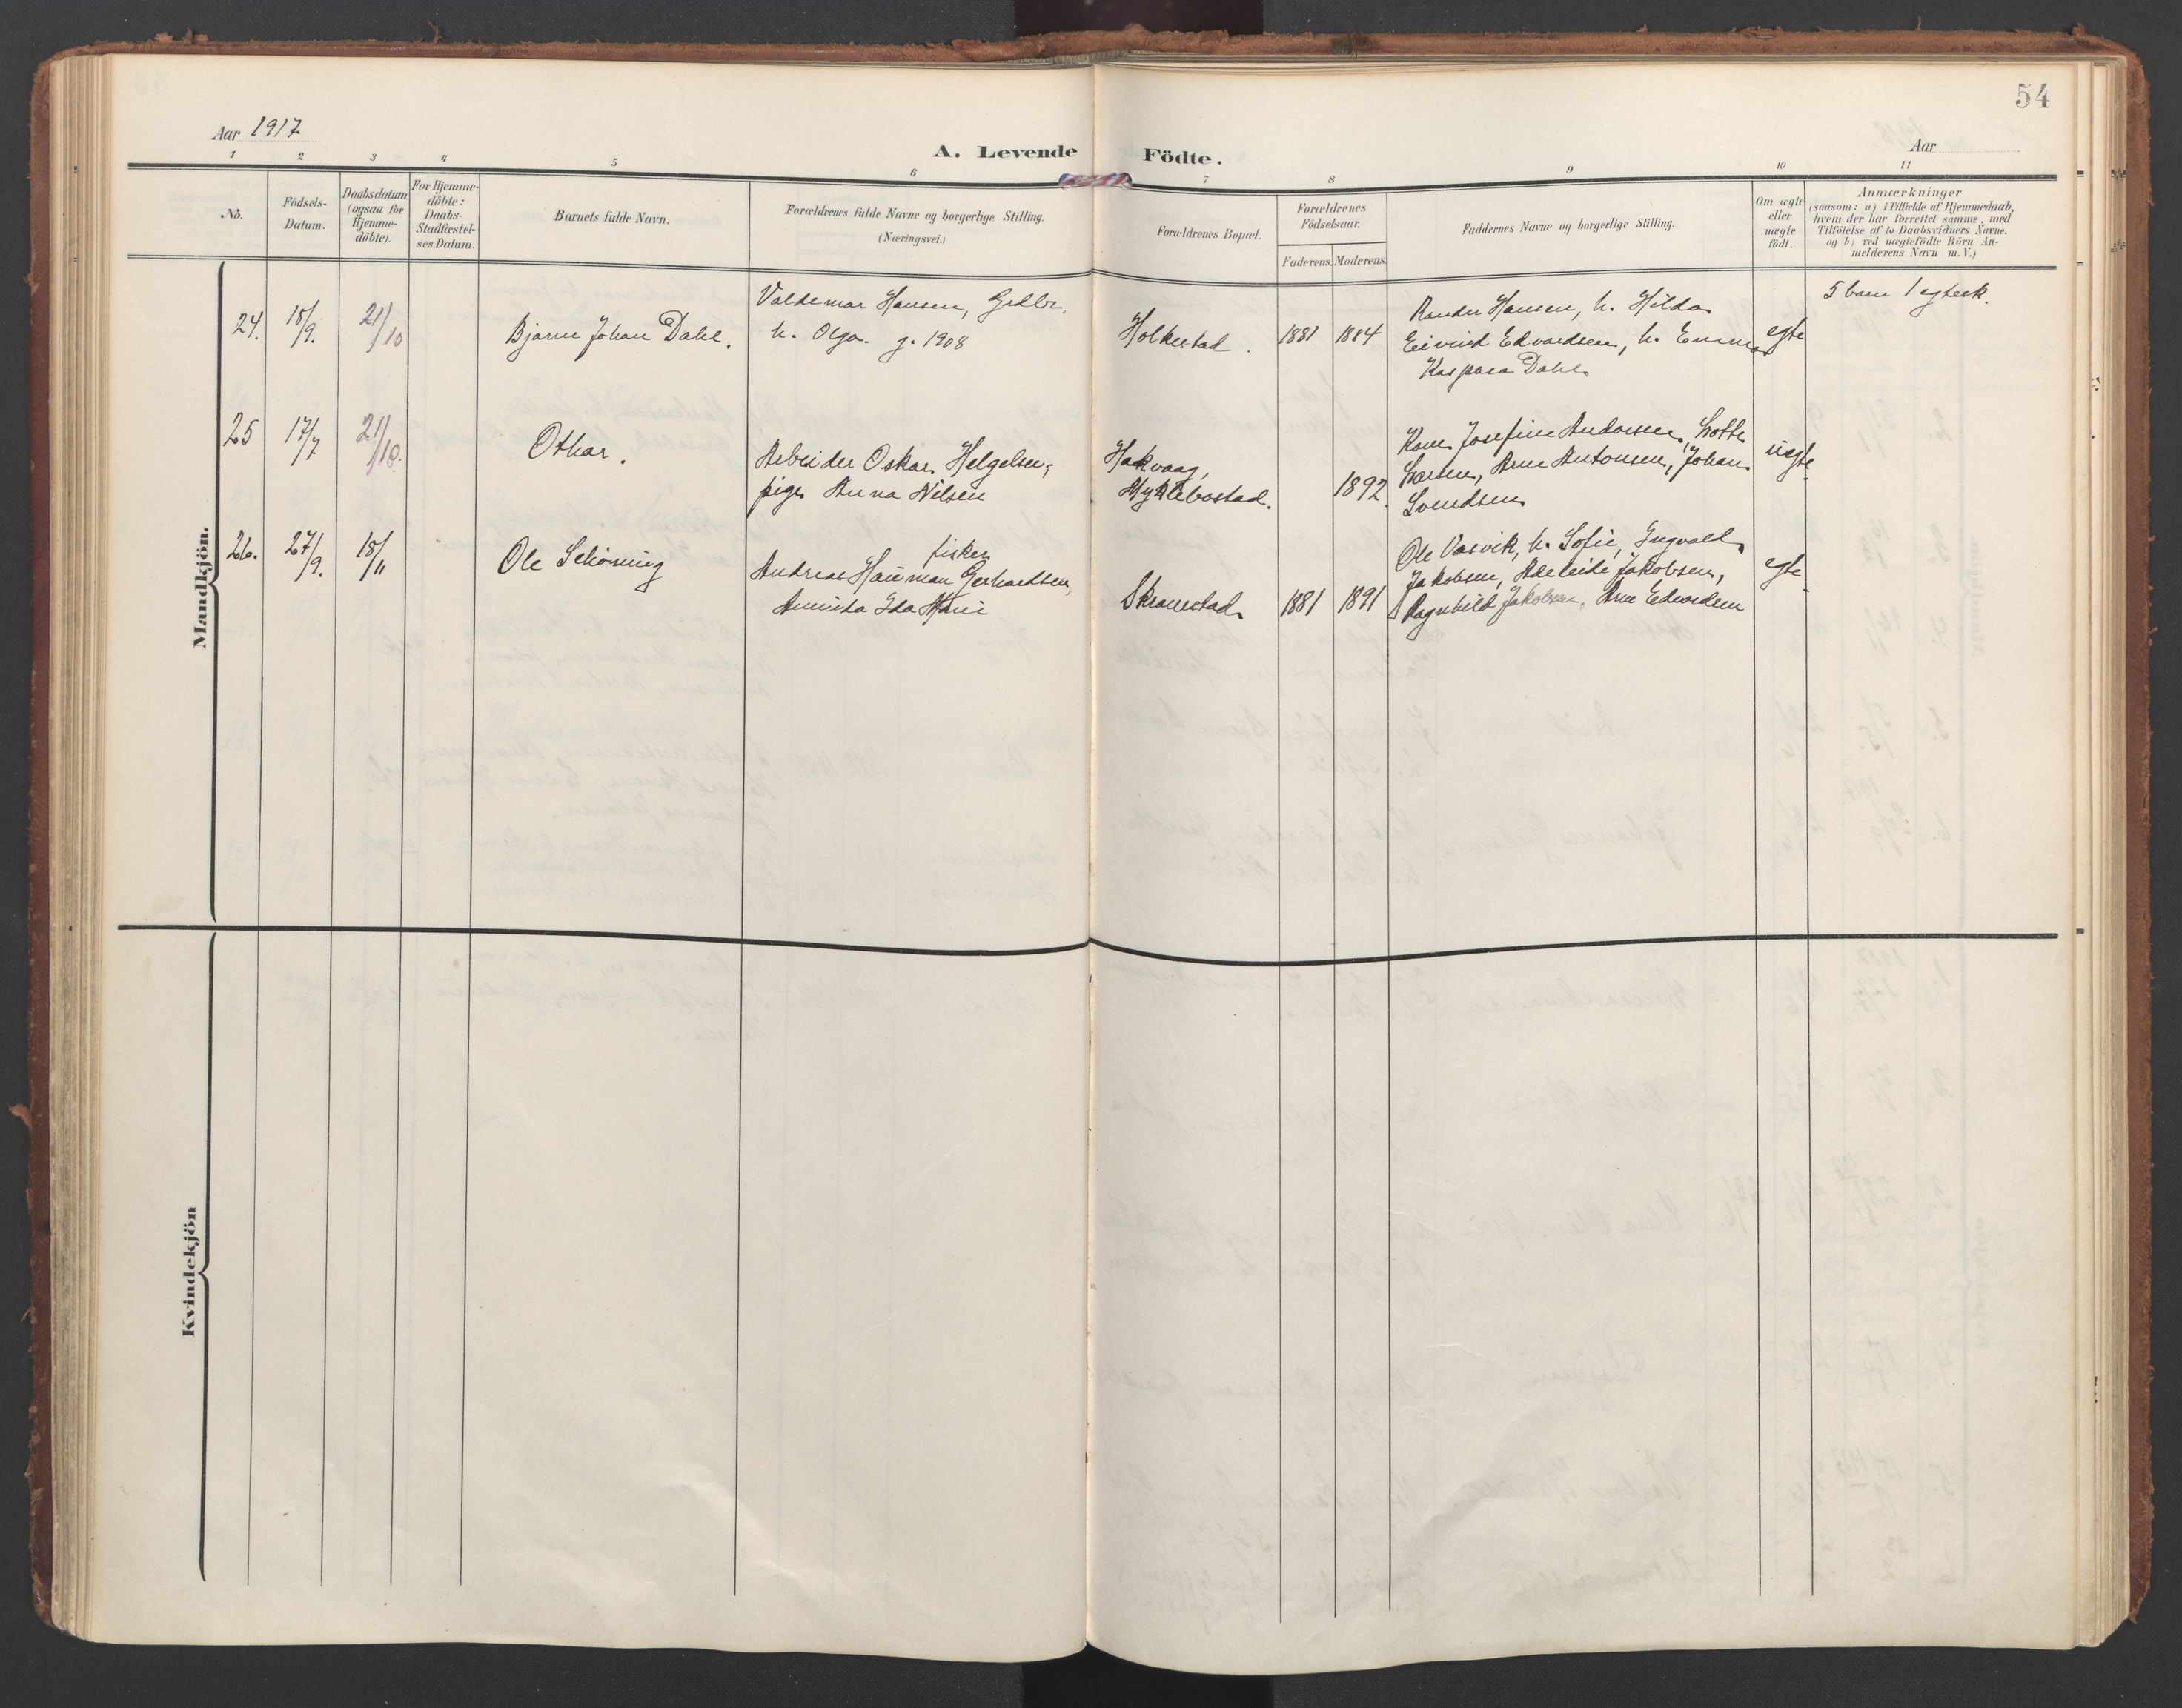 54
Aar 1917
Aar
A. Levende Födte.
1 2 3 4 5 6 7 8 9 10 11
No.
Födsels-
Datum.
Daabsdatum
(ogsaa for
Hjemme-
döbte).
For Hjemme-
döbte:
Daabs-
Stadfæstel-
ses Datum.
Barnets fulde Navn.
Forældrenes fulde Navne og borgerlige Stilling.
(Næringsvei.)
Forældrenes Bopæl.
Forældrenes
Födselsaar.
Faderens. Moderens.
Faddernes Navne og borgerlige Stilling.
Om ægte
eller
uægte
födt.
Anmærkninger
(saasom: a) i Tilfælde af Hjemmedaab,
hvem der har forrettet samme, med
Tilföielse af to Daabsvidners Navne.
og b) ved uægtefödte Börn An-
melderens Navn m. V.)
Mandkjön.
24.
18/9.
21/10
Bjarne Johan Dahl.
Valdemar Hansen, Grdbr.
h. Olga. g. 1908
Holkestad.
1881
1884
Hansen, h. Hilda
Eivind Edvardsen, h. Emma
Kaspara Dahl
egte
5 barn 1 egtesk.
25
17/7
21/10.
Othar.
Arbeider Oskar Helgesen,
pige Anna Nilsen
Hakvaag,
Myklebostad.
1892.
Kone Josefine Andersen, Lotte
Larsen, Arne Antonsen, Johan
Svendsen
uegte
26.
27/9.
18/11
Ole Schöning
fisker
Andreas Hartman Gerhardtsen,
Aminda Ida Marie
Skranstad
1881
1891
Ole Vasvik, h. Sofie, Ingvald
Jakobsen, Adeleide Jakobsen,
Ragnhild Jakobsen, Arne Edvardsen
egte
Kvindekjön